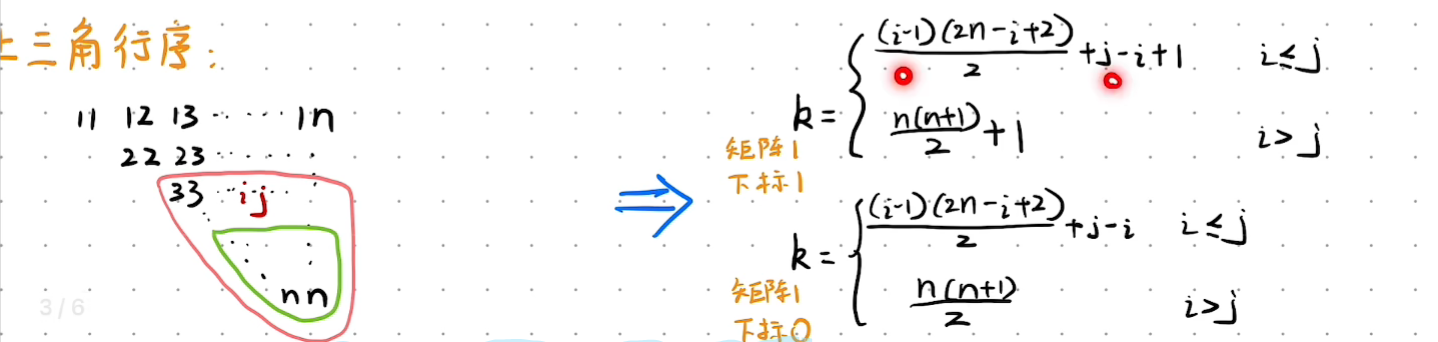 上三角行序:
11 12 13 ····· 1n
22 23 ······
33 ··· ij ··
nn
3 / 6
⇒
矩阵1
下标1
k = { (i-1)(2n-i+2)/2 + j-i+1    i≤j
n(n+1)/2 + 1    i>j
矩阵1
下标0
k = { (i-1)(2n-i+2)/2 + j-i    i≤j
n(n+1)/2    i>j